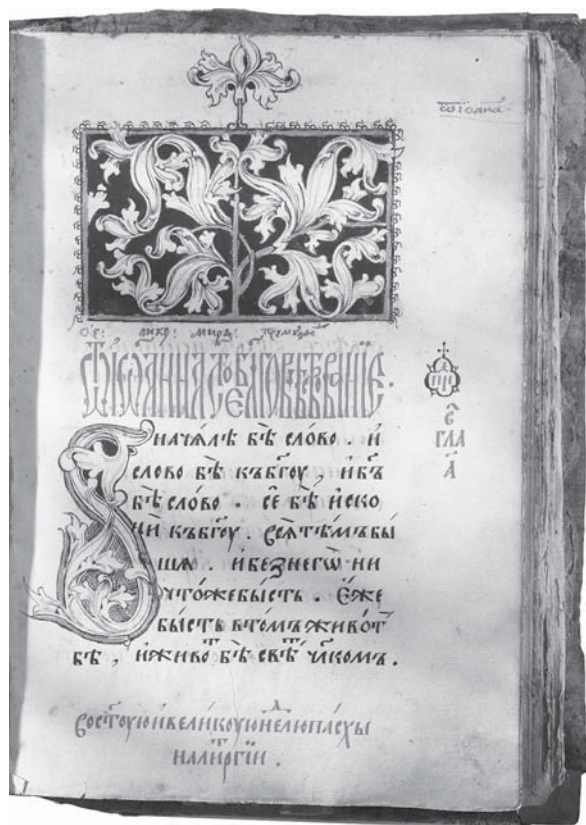 ѿ іѡанна
Ѿ ІѠАННА СТ҃ОЕ БЛ҃ГОВѢСТВОВАНІЕ .
В̾ начѧлѣ бѣ сло́во . и҆
слово бѣ къ бг҃оу , и҆ бг҃ъ
бѣ сло́во . се҆́ бѣ и҆ско
ни къ бг҃оу . всѧ тѣ́мъ бы́
шѧ . и҆ без̾ него̀ ни
что́же бы́сть . є҆́же
бы́сть в то́мъ живо́т
бѣ , и҆ живо́т бѣ свѣ́т чл҃комъ .
во ст҃оую и҆ вели́коую нед҃елю па́схы
на лит̾рги́и .
за
пⷱ҇
є҃
гла
а҃